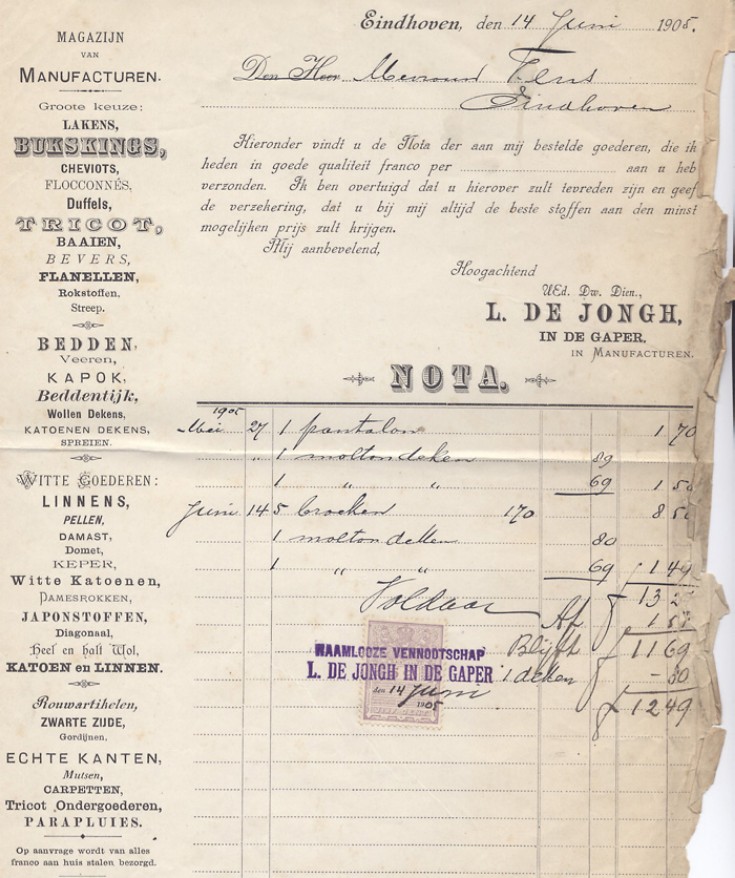 Eindhoven, den 14 Juni 1905.
Den Heer Mevrouw
Eindhoven
Hieronder vindt u de Nota der aan mij bestelde goederen, die ik
heden in goede qualiteit franco per aan u heb
verzonden. Ik ben overtuigd dat u hierover zult tevreden zijn en geef
de verzekering, dat u bij mij altijd de beste stoffen aan den minst
mogelijken prijs zult krijgen.
Mij aanbevelend,
Hoogachtend
UEd. Dw. Dien.,
L. DE JONGH,
IN DE GAPER,
IN MANUFACTUREN.
MAGAZIJN
VAN
MANUFACTUREN.
Groote keuze:
LAKENS,
BUKSKINGS,
CHEVIOTS,
FLOCCONNÉS,
Duffels,
TRICOT,
BAAIEN,
BEVERS,
FLANELLEN,
Rokstoffen,
Streep.
BEDDEN,
Veeren,
KAPOK,
Beddentijk,
Wollen Dekens,
KATOENEN DEKENS,
SPREIEN.
WITTE GOEDEREN:
LINNENS,
PELLEN,
DAMAST,
Domet,
KEPER,
Witte Katoenen,
DAMESROKKEN,
JAPONSTOFFEN,
Diagonaal,
Heel en half Wol,
KATOEN en LINNEN.
Rouwartikelen,
ZWARTE ZIJDE,
Gordijnen,
ECHTE KANTEN,
Mutsen,
CARPETTEN,
Tricot Ondergoederen,
PARAPLUIES.
Op aanvrage wordt van alles
franco aan huis stalen bezorgd.
NOTA.
1905
Mei 27 1 pantalon 1 70
" 1 moltondeken 89
1 " " 69 1 58
Juni 14 5 broeken 170 8 50
1 moltondeken 80
1 " " 69 1 49
Voldaan 13 27
Af 1 58
Blijft 11 69
1 deken - 80
12 49
NAAMLOOZE VENNOOTSCHAP
L. DE JONGH IN DE GAPER
den 14 Juni
1905